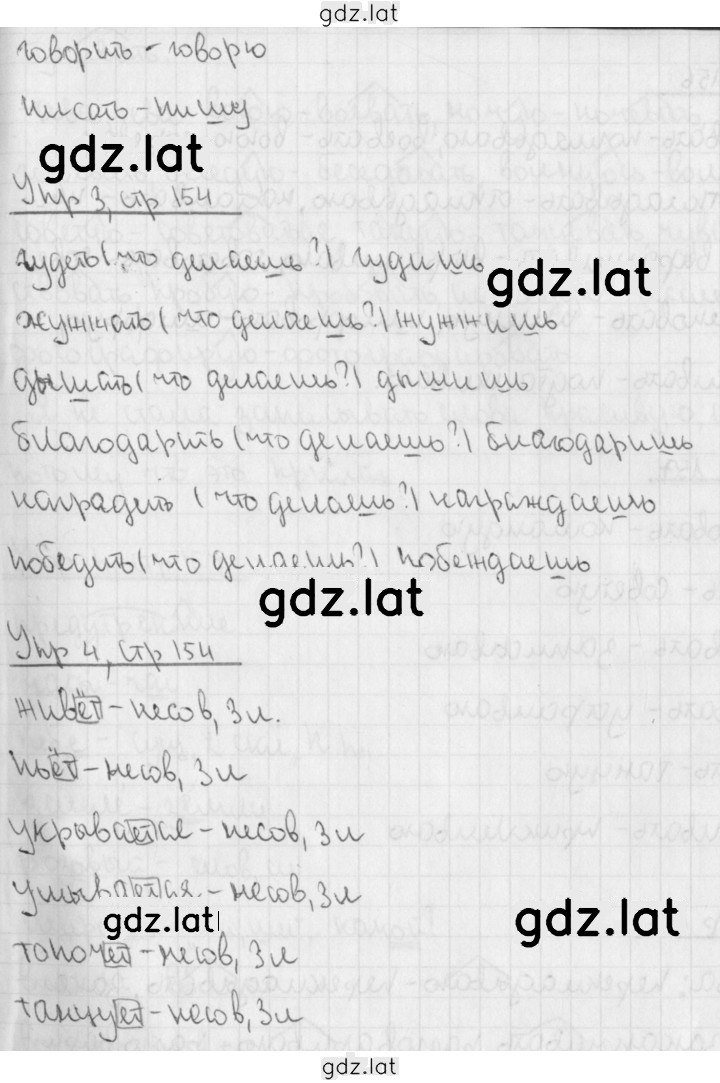 gdz.lat
говорить - говорю
писать - пишу
gdz.lat
Упр 3, стр 154
гудеть (что делаешь?) гудишь
gdz.lat
жужжать (что делаешь?) жужжишь
дышать (что делаешь?) дышишь
благодарить (что делаешь?) благодаришь
наградить (что делаешь?) награждаешь
победить (что делаешь?) побеждаешь
gdz.lat
Упр 4, стр 154
живёт - несов, 3 л.
пьёт - несов, 3 л
укрывается - несов, 3 л
умывается - несов, 3 л
gdz.lat gdz.lat
топочет - несов, 3 л
танцует - несов, 3 л
gdz.lat